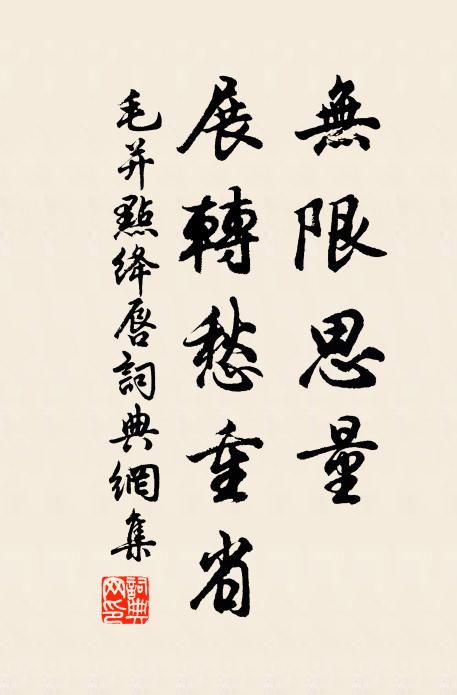 無限思量
展轉愁重省
毛并點绛唇詞典網集
詞典網印